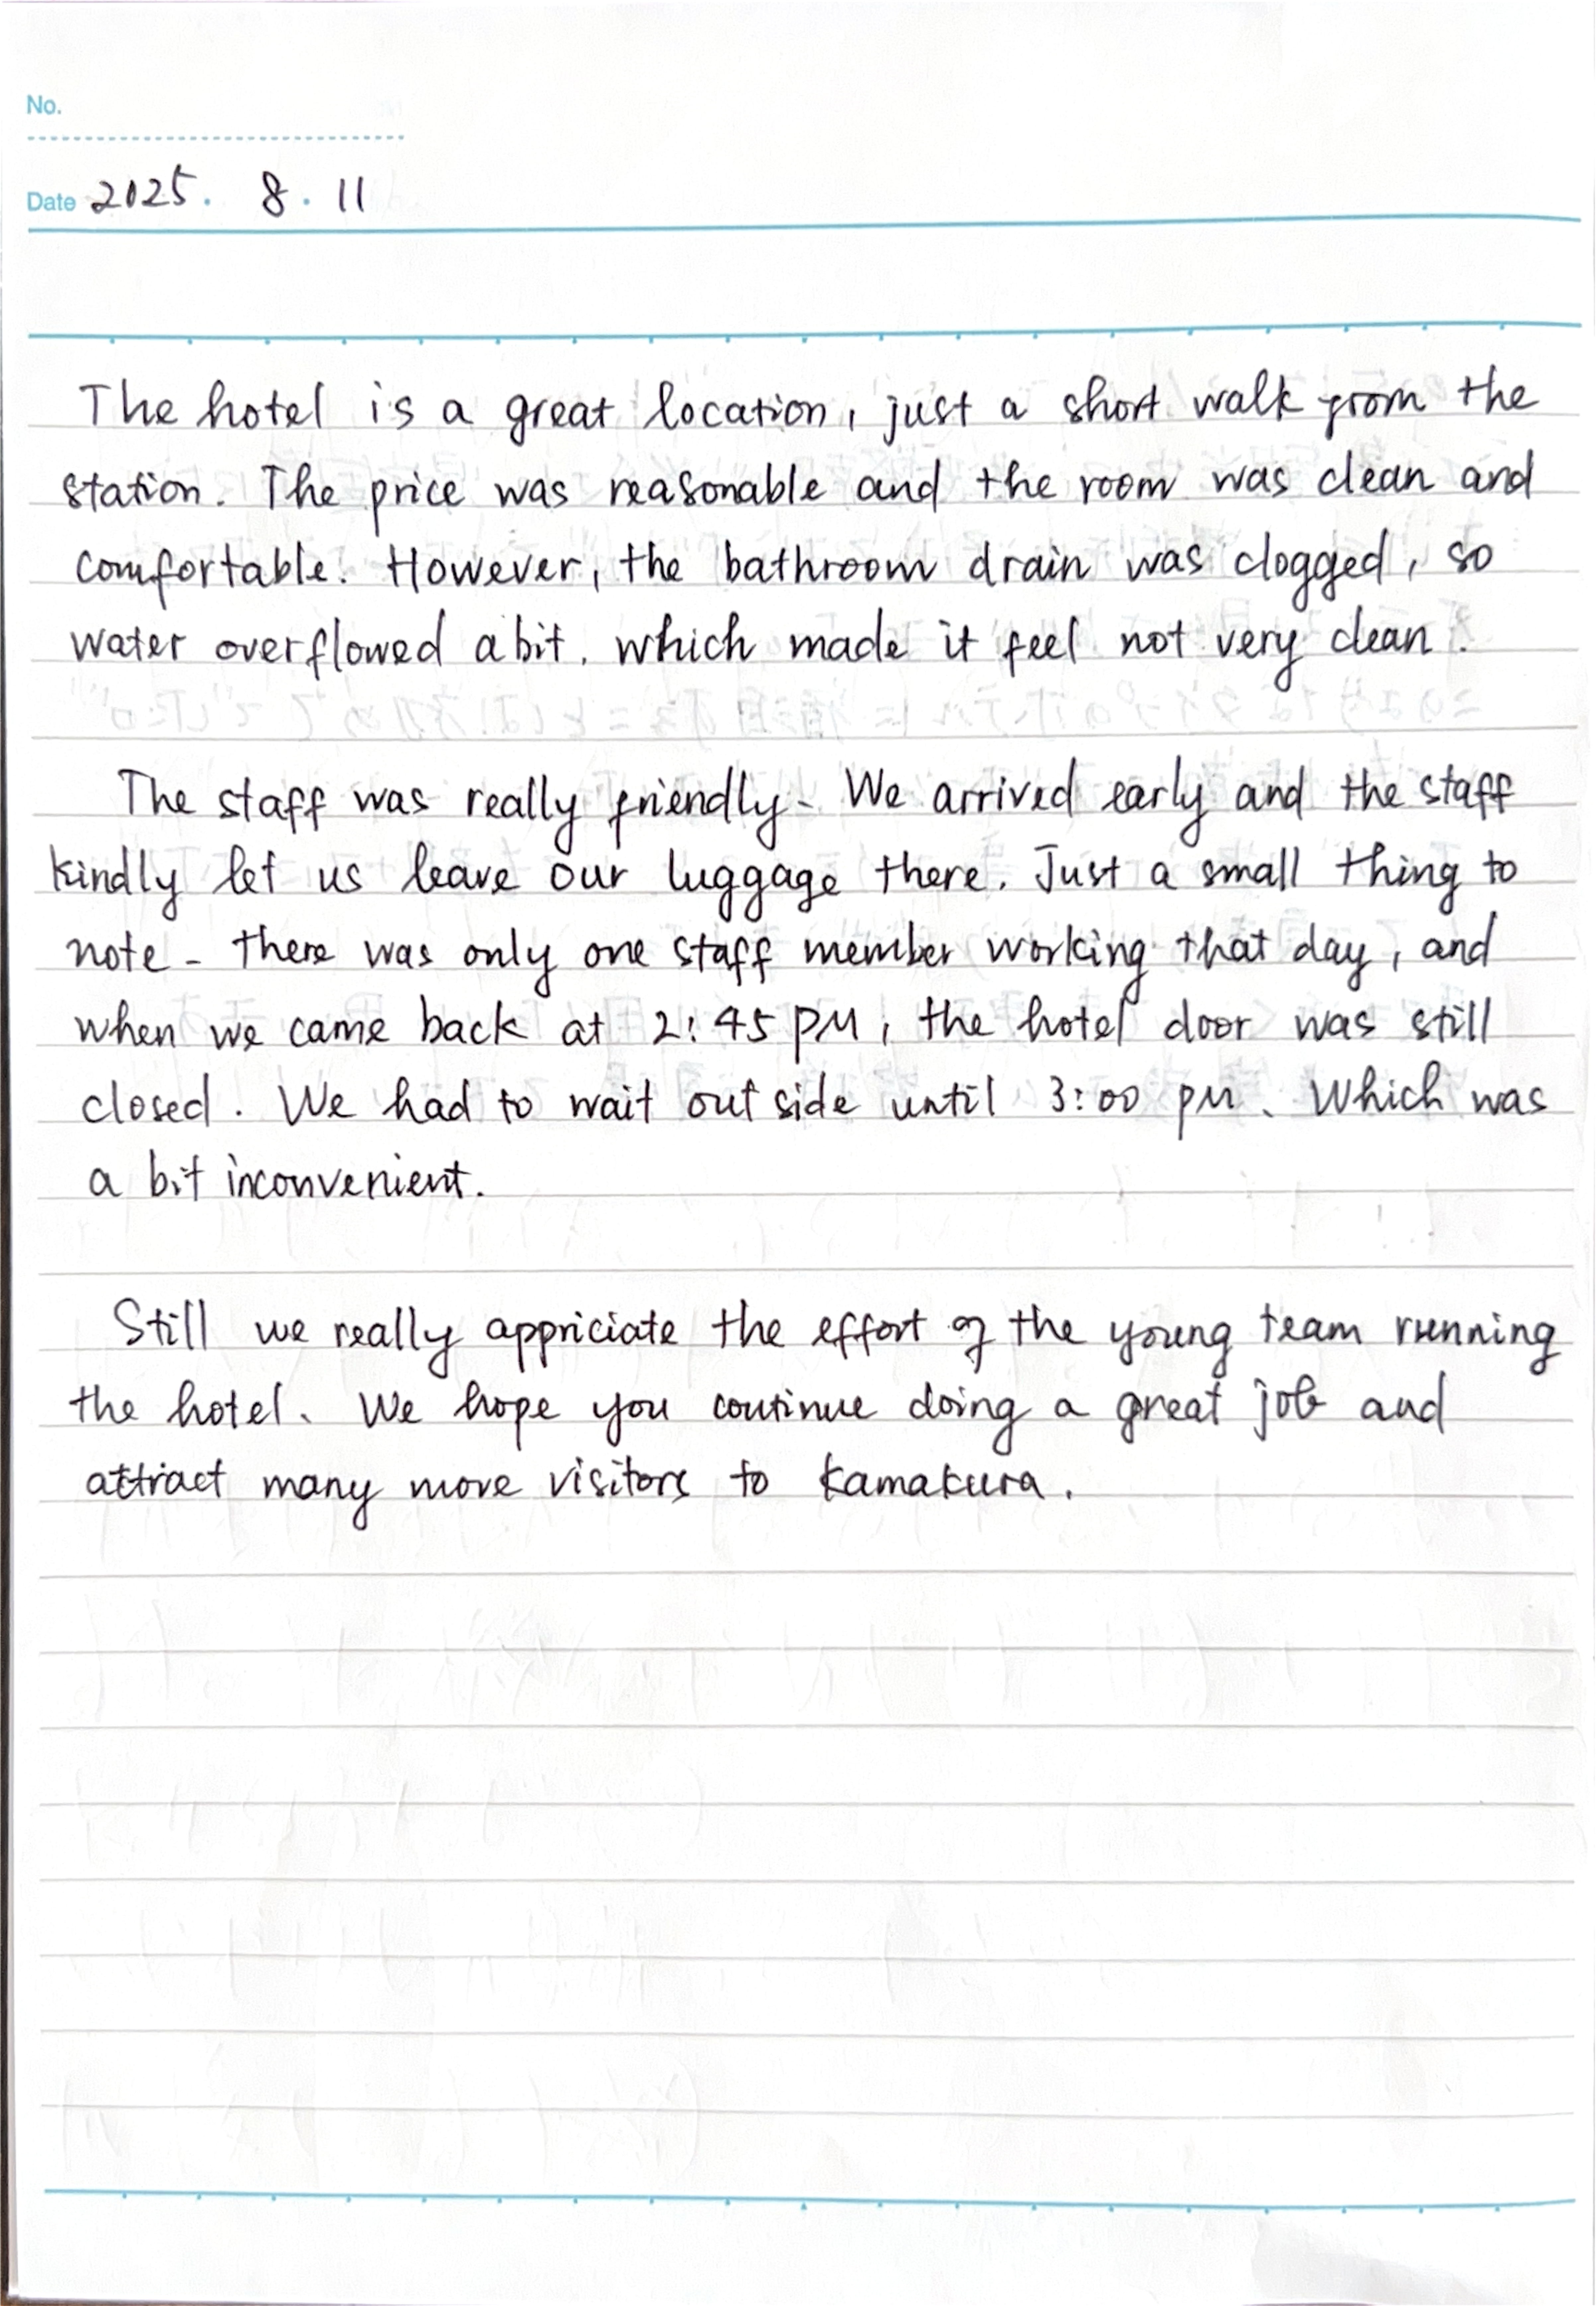 No.
Date 2025. 8. 11
The hotel is a great location, just a short walk from the
station. The price was reasonable and the room was clean and
comfortable. However, the bathroom drain was clogged, so
water overflowed a bit. which made it feel not very clean.
The staff was really friendly. We arrived early and the staff
kindly let us leave our luggage there. Just a small thing to
note - there was only one staff member working that day, and
when we came back at 2:45 PM, the hotel door was still
closed. We had to wait outside until 3:00 PM. Which was
a bit inconvenient.
Still we really appriciate the effort of the young team running
the hotel. We hope you continue doing a great job and
attract many more visitors to Kamakura.